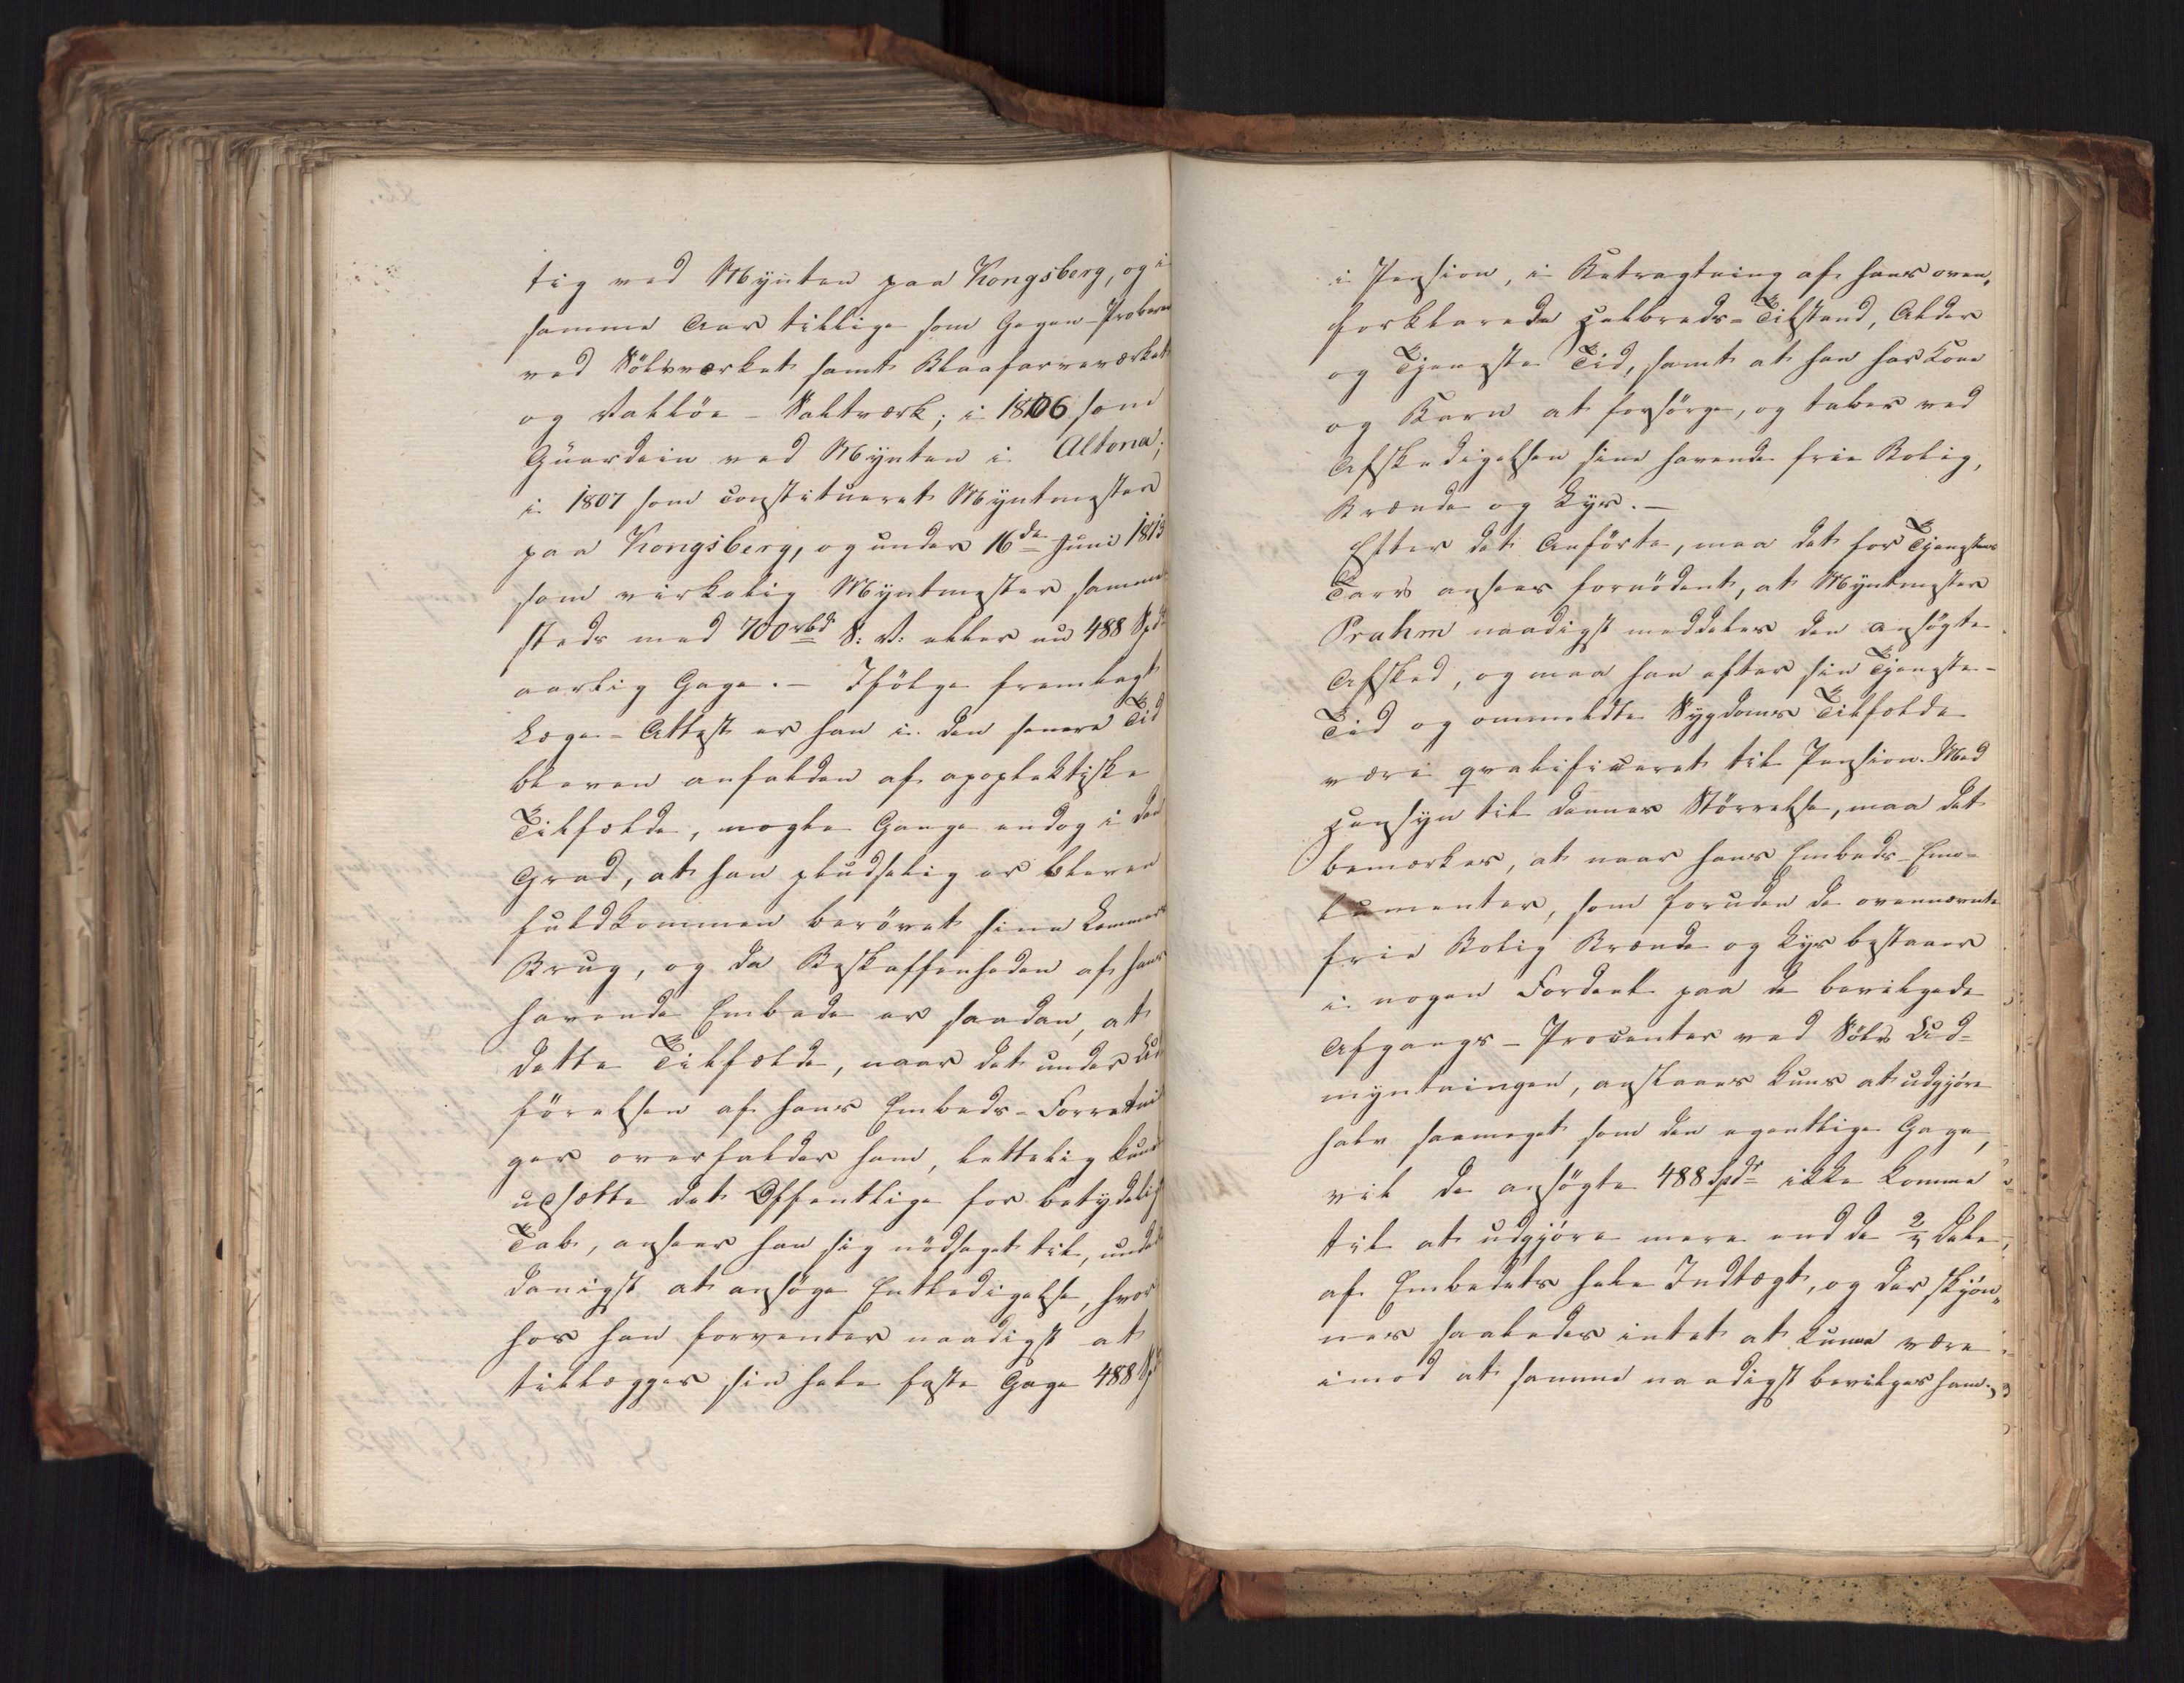 tig ved Mynten paa Kongsberg, og i
samme Aar tillige som Gegen-Proberer
ved Sölvværket samt Blaafarveværket
og Valløe-Saltværk; i 1806 som
Guardein ved Mynten i Altona;
i 1807 som constitueret Myntmester
paa Kongsberg, og under 16de Juni 1813
som virkelig Myntmester samme-
steds med 700 rbd S: V: eller nu 488 Spd
aarlig Gage. – Ifölge fremlagt
Læge-Attest er han i den senere Tid
bleven anfalden af apoplektiske
Tilfælde, nogle Gange endog i den
Grad, at han pludselig er bleven
fuldkommen berövet sine Lemmers
Brug, og da Beskaffenheden af hans
havende Embede er saadan, at
dette Tilfælde, naar det under Ud-
förelsen af hans Embeds-Forretnin
ger overfalder ham, lettelig kunde
udsætte det Offentlige for betydelig
Tab, anseer han sig nödsaget til, under
danigst at ansöge Entledigelse, hvor
hos han forventer naadigst at
tillægges sin hele faste Gage 488 Spd
i Pension, i Betragtning af hans oven„
forklarede Helbreds-Tilstand, Alder
og Tjeneste Tid, samt at han har Kone
og Barn at forsörge, og taber ved
Afskedigelsen sine havende frie Bolig,
Brænde og Lys. –
Efter det Anförte, maa det for Tjenestens
Tarv ansees fornödent, at Myntmester
Prahm naadigst meddeles den ansögte
Afsked, og maa han efter sin Tjeneste-
Tid og ommeldte Sygdoms Tilfælde
være qvalificeret til Pension. Med
Hensyn til dennes Störrelse, maa det
bemærkes, at naar hans Embeds-Emo-
lumenter, som foruden de ovennævnte
frie Bolig Brænde og Lys bestaaer
i nogen Fordeel paa de bevilgede
Afgangs-Procenter ved Sölvs Ud-
myntningen, anslaaes kuns at udgjöre
halv saameget som den egentlige Gage,
vil de ansögte 488 Spdr ikke komme
til at udgjöre mere end de 2/3 Dele
af Embedets hele Indtægt, og der skjön„
nes saaledes intet at kunne være
imod at samme naadigst bevilges ham.